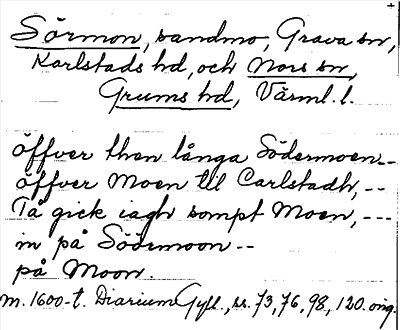 Sörmon, sandmo, Grava sn,
Karlstads hd, och Nors sn,
Grums hd, Värml. l.
öffver then långa Södermoen--
öffver Moen til Carlstadh, --
Tå gick iagh sompt Moen, ---
in på Södemoon --
på Moon.
m. 1600-t. Diarium Gyll., ss. 73, 76, 98, 120. orig.